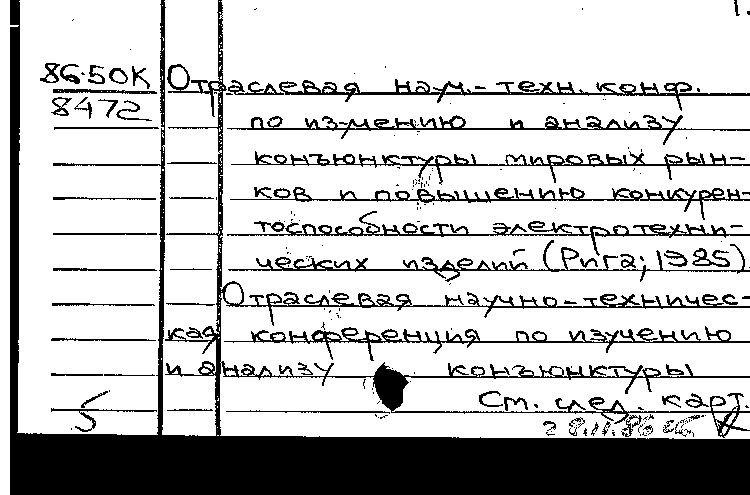 1.
86-50К Отраслевая науч.-техн. конф.
8472
по изучению и анализу
конъюнктуры мировых рын-
ков и повышению конкурен-
тоспособности электротехни-
ческих изделий (Рига; 1985)
Отраслевая научно-техничес-
кая конференция по изучению
и анализу конъюнктуры
См. след. карт.
5